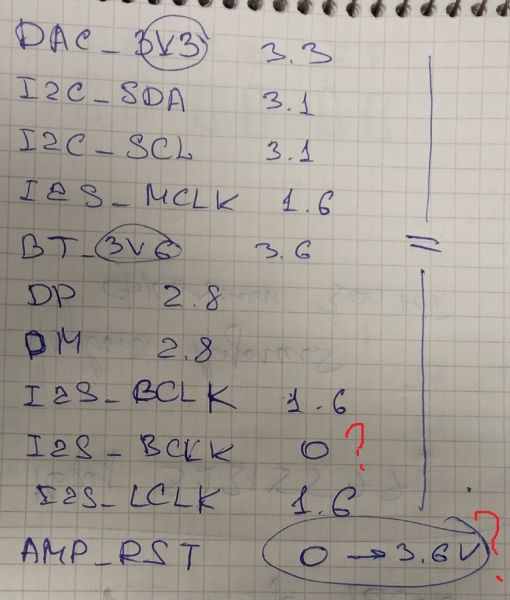 DAC_3V3 3.3
I2C_SDA 3.1
I2C_SCL 3.1
I2S_MCLK 1.6
BT_3V6 3.6 =
DP 2.8
DM 2.8
I2S_BCLK 1.6
I2S_BCKK 0 ?
I2S_LCLK 1.6
AMP_RST 0 → 3.6V ?